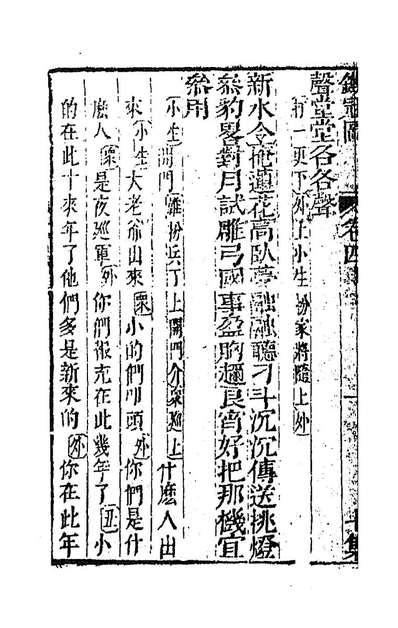 鐵冠圖 卷四 十集
聲堂堂各各聲
打一更下外上小生扮家將隨上外
新水令掩蓮花高臥夢融融聽刁斗沉沉傳送挑燈
叅豹畧對月試雕弓國事盈胸良宵好把那機宜
叅用
小生開門雜扮兵丁上開門介衆廵上什麽人出
來小生大老爺出來衆小的們叩頭外你們是什
麽人衆是夜廵軍外你們報充在此幾年了丑小
的在此十來年了他們多是新來的外你在此年